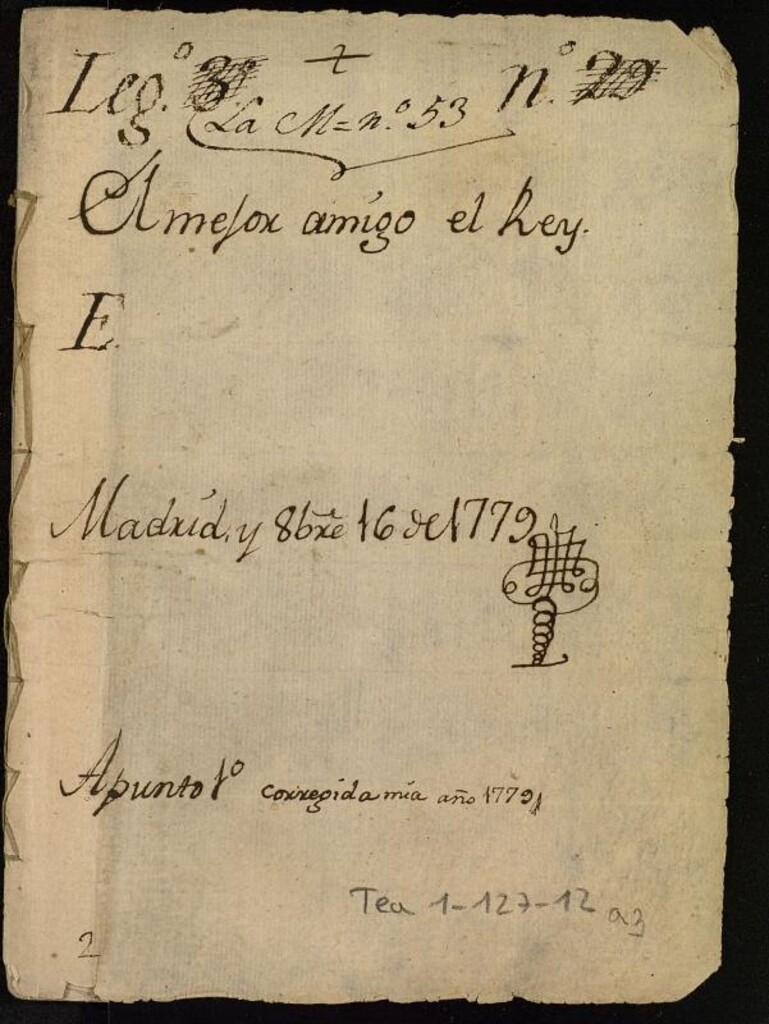 Leg.º 3º + n.º 29
La M=n.º 53
El mejor amigo el Rey.
E.
Madrid, y 8bre 16 de 1779
Apunto 1º corregida mia año 1779
Tea 1-127-12 a3
2